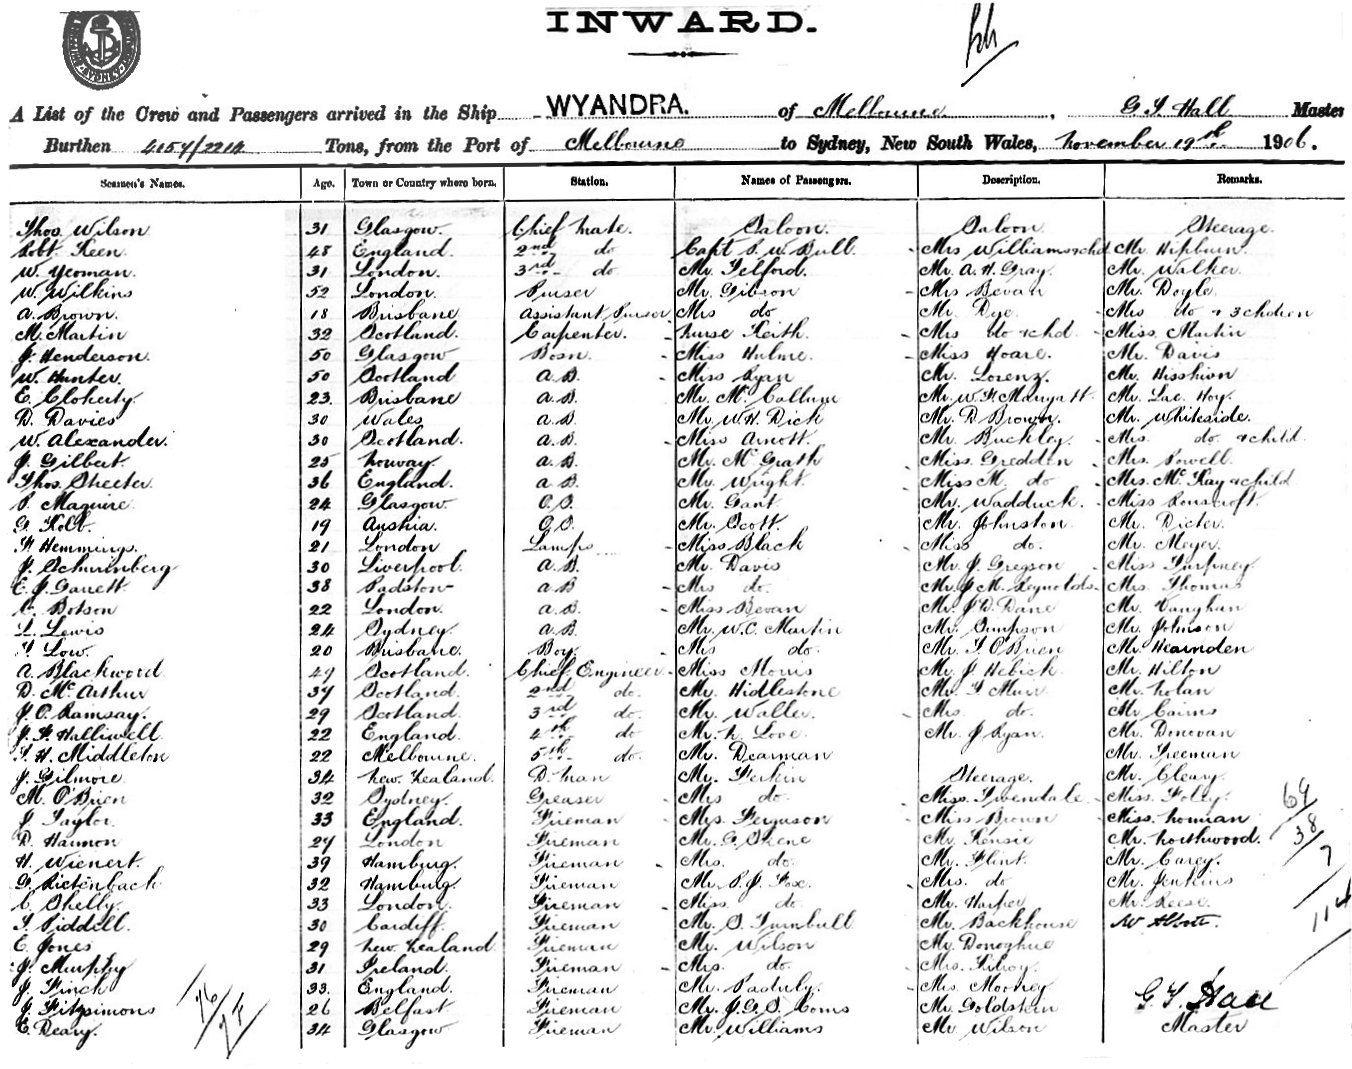 INWARD.
A List of the Crew and Passengers arrived in the Ship WYANDRA. of Melbourne, G S Hall Master
Burthen Tons, from the Port of Melbourne to Sydney, New South Wales, November 19th 1906.
Seamen's Names. Age. Town or Country where born. Station. Names of Passengers. Description. Remarks.
Thos Wilson 31 Glasgow. Chief Mate. Saloon. Saloon. Steerage.
Robt Keen 48 England. 2nd do Capt S. W. Bull Mrs Williams & chd Mr. Hepburn
W. Yeoman. 31 London. 3rd do Mr Telford. Mr. A. H. Gray. Mr. Walker
W. Wilkins 52 London. Purser Mr. Gibson Mrs Bevan Mr. Doyle
A. Brown. 18 Brisbane Assistant Purser Mrs do Mr. Dye. Mrs do & 3 children
M. Martin 32 Scotland. Carpenter. Nurse Keith. Mrs do & chd. Miss. Martin
J. Henderson. 50 Glasgow Bosn. Miss Hulme. Miss Hoare. Mr. Davis
W. Hunter. 50 Scotland A.B. Miss Ryan Mr. Lorenz. Mr.
E. Cloherty 23 Brisbane A.B. Mr. McCallum Mr. W. H. Mr. Lee Hoy.
D. Davies 30 Wales A.B. Mr. W. H. Dick Mr. D Brown. Mr. Whiteside.
W. Alexander. 30 Scotland. A.B. Miss Arnott. Mr. Buckley. Mrs. do. & child.
J. Gilbert. 25 Norway. A.B. Mr. McGrath Miss. Greddon Mrs. Powell.
Thos. Streeter. 36 England. A.B. Mr. Wright. Miss M. do Mrs. McKay & child
P. Maguire 24 Glasgow. O.S. Mr. Gant. Mr. Wadduck. Miss
G. Holt. 19 Austria. O.S. Mr. Scott. Mr. Johnston. Mr. Dicter.
H Hemmings. 21 London Lamps Miss Black Miss do. Mr. Meyer.
J. Schurenberg 30 Liverpool. A.B. Mr. Davis Mr. J. Gregson Miss
E. J. Garrett. 38 Padstow A.B. Mrs do. Mr. J. M. Reynolds. Mrs. Thomas
C. Botson 22 London. A.B. Miss Bevan Mr. J. D. Dane Mr. Vaughan
L. Lewis 24 Sydney. A.B. Mr. W. C. Martin Mr. Simpson Mr. Johnson
T. Low. 20 Brisbane. Boy. Mrs do. Mr. T. O'Brien Mr. Hearnden
A. Blackwood 49 Scotland. Chief Engineer Miss Morris Mr. J Hebick. Mr. Hilton
D. McArthur 34 Scotland. 2nd do. Mr. Hidlestone Mr. T Muir. Mr. Nolan
J. C. Ramsay. 29 Scotland. 3rd do. Mr. Waller. Mrs. do. Mr. Cairns
J. F. Halliwell. 22 England. 4th do Mr. N. Love. Mr. J Ryan. Mr. Donovan
T. H. Middleton 22 Melbourne. 5th do. Mr. Dearman Mr. Freeman
J. Gilmore. 34 New Zealand. D. Man Mr. Ferkin Steerage. Mr. Cleary.
M. O'Brien 32 Sydney. Greaser Mrs do. Miss. Twendale. Miss. Foley.
J Taylor. 33 England. Fireman Mrs. Ferguson Miss Brown Miss. Norman
D. Harmon 29 London Fireman Mr. G. Skene Mr. Kensie Mr. Northwood.
H. Wienert. 39 Hamburg. Fireman Mrs. do. Mr. Flint. Mr. Carey.
G. Rietenbach 32 Hamburg. Fireman Mr. P. J. Fox. Mrs. do Mr. Jenkins
C. Shelly. 33 London. Fireman Miss. do. Mr. Harper Mr. Reese.
T. Piddell. 30 Cardiff. Fireman Mr. S. Turnbull Mr. Backhouse W Abbott.
E. Jones 29 New Zealand Fireman Mr. Wilson Mr. Donoghue
J. Murphy 31 Ireland. Fireman Mrs. do. Mrs. Kilroy.
J. Finch 33. England. Fireman Mr. Mrs. Mooney
J. Fitzsimons 26 Belfast. Fireman Mr. J. G. S. Coms Mr. Goldstein G. S. Hall
E. Deary. 34 Glasgow Fireman Mr. Williams Mr Wilson Master
69
38
7
114